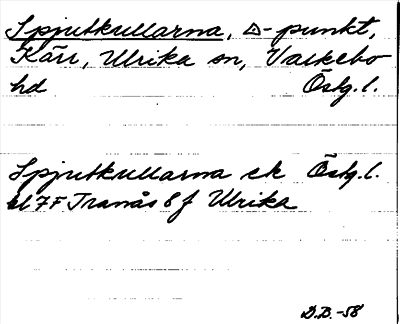 Spjutkullarna, △-punkt,
Kärr, Ulrika sn, Valkebo
hd Östg.l.
Spjutkullarna ek Östg.l.
bl 7F Tranås 8f Ulrika
D.B.-58